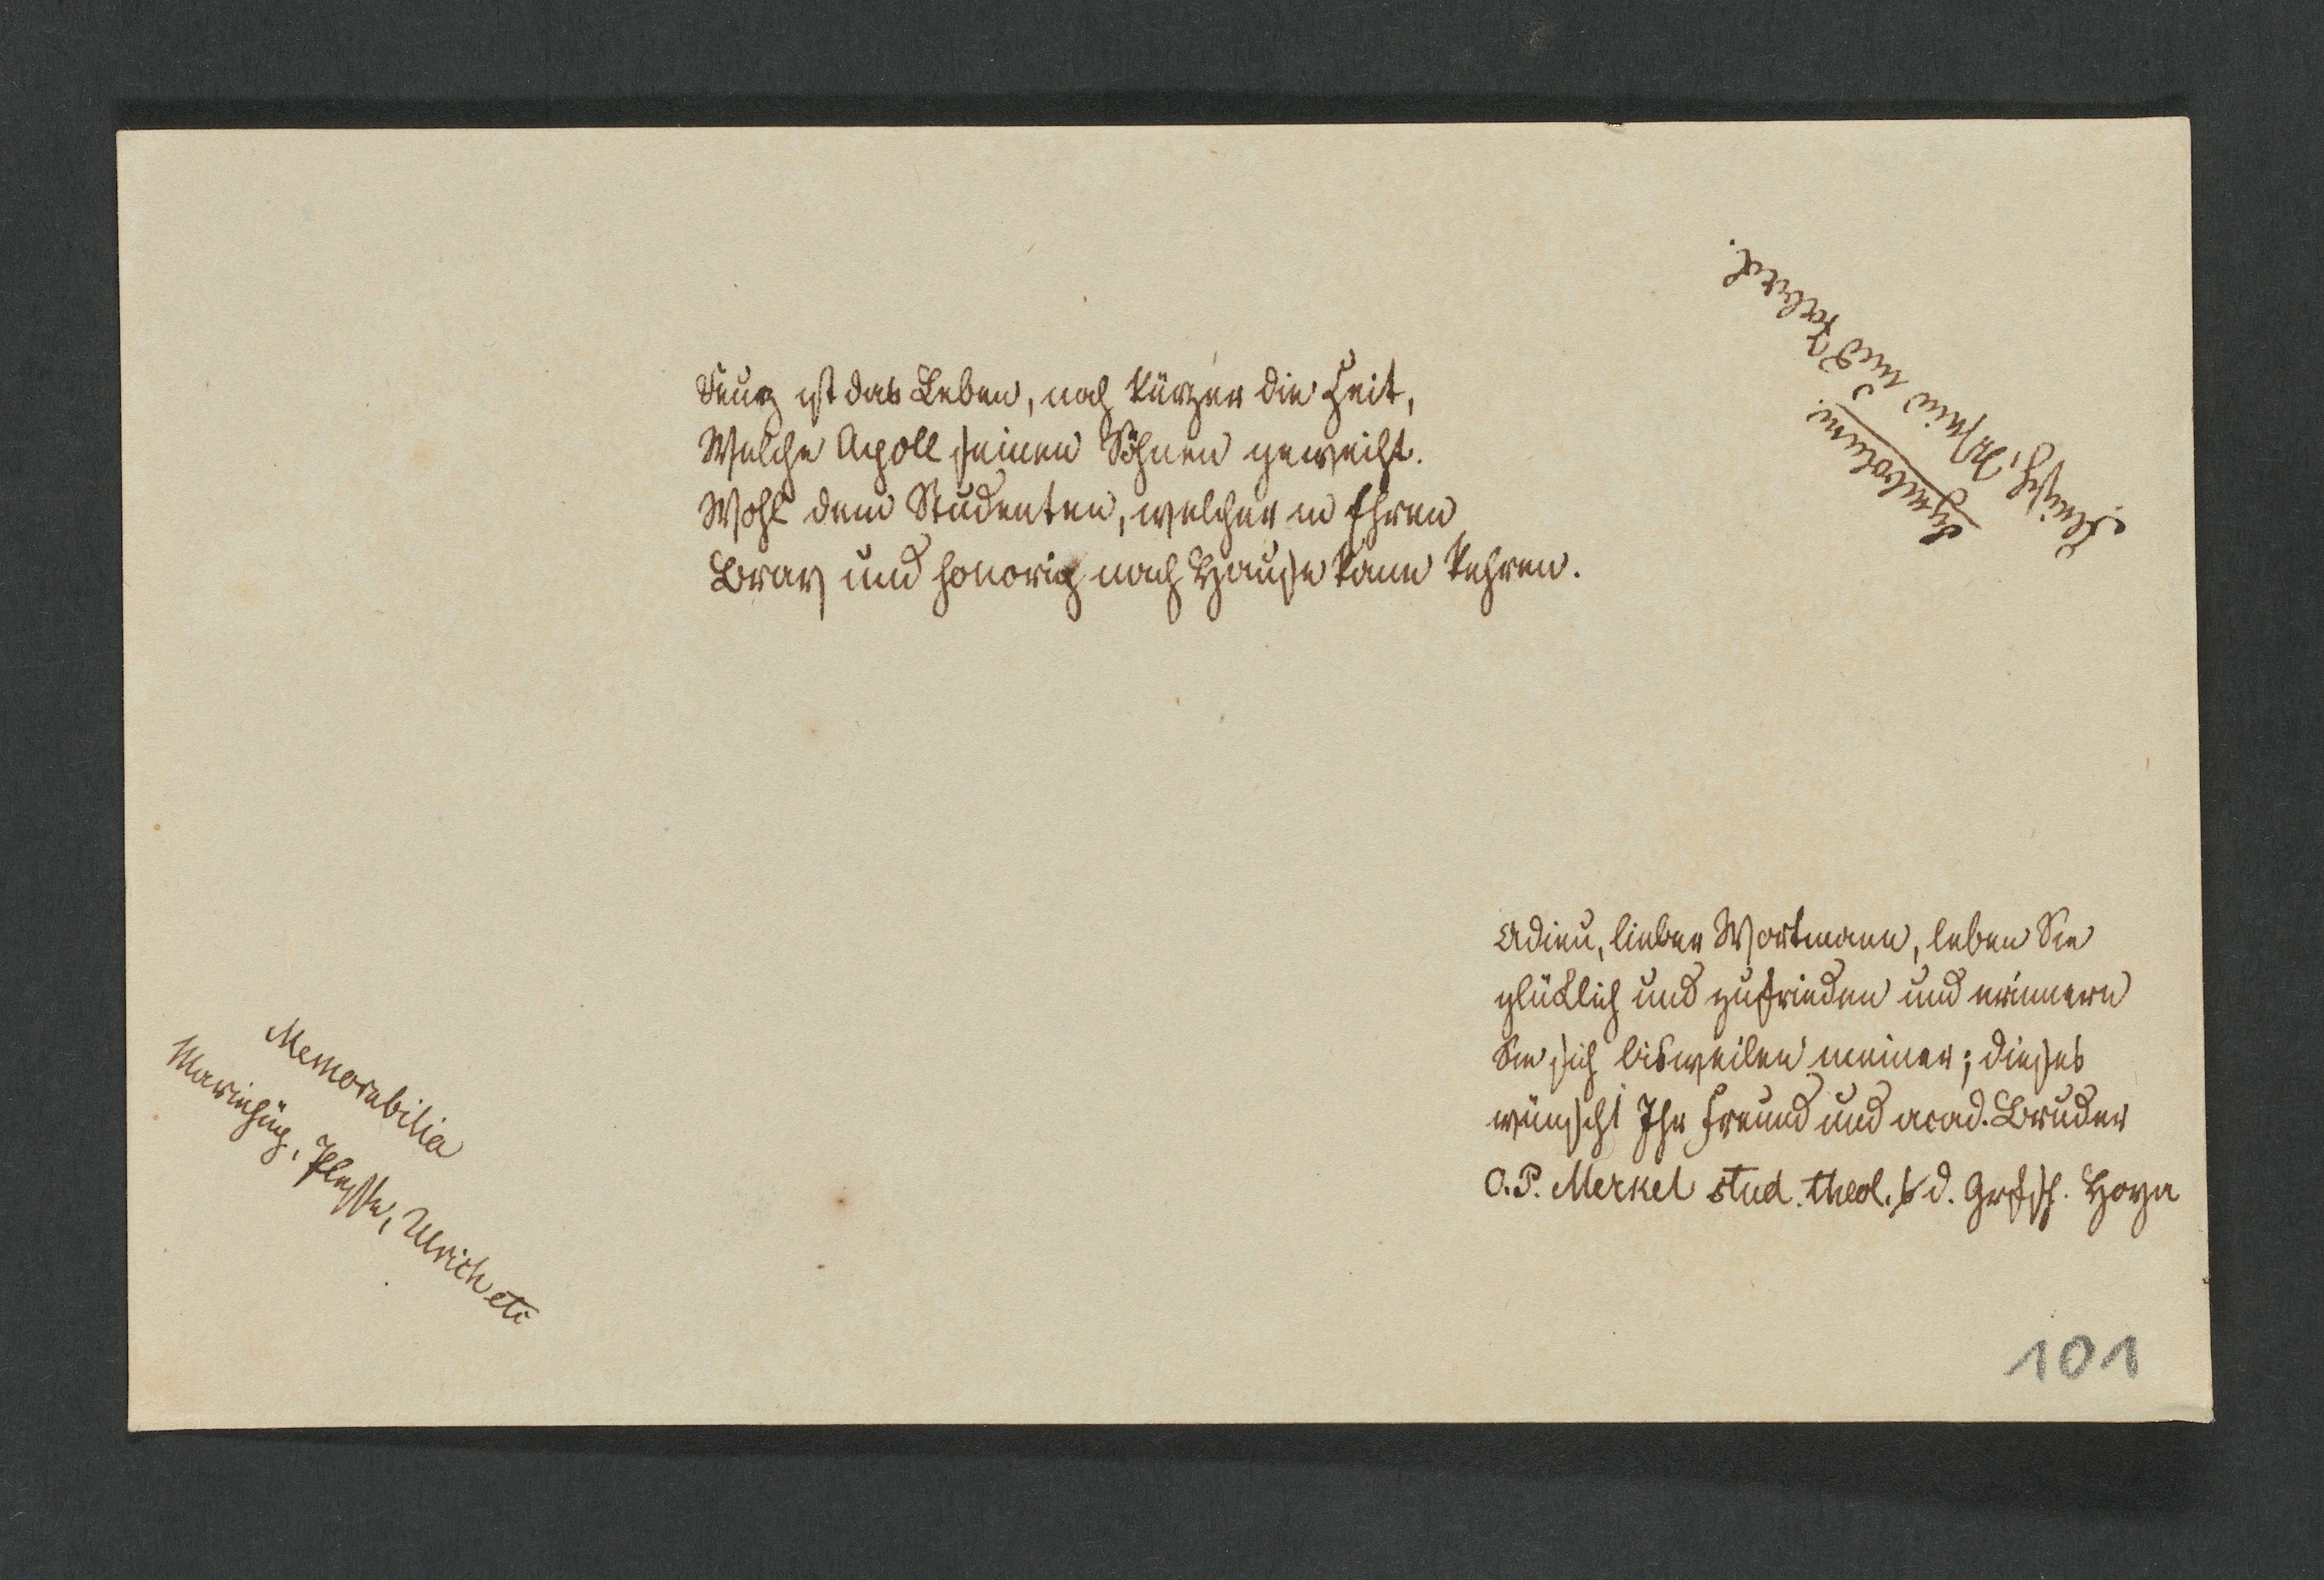 Kurz ist das Leben, noch kürzer die Zeit,
Welche Apoll seinen Söhnen geweiht.
Wohl dem Studenten, welcher in Ehren
Brav und honorig nach Hause kann kehren.
Symbolum.
und Toback.
Adieu, lieber Wortmann, leben Sie
glücklich und zufrieden und erinnern
Sie sich bisweilen meiner; dieses
wünscht Ihr Freund und acad. Bruder
O. P. Merkel stud. theol. d. Grfsch. Hoya
Memorabilia
Mariaspring, Plesse, Ulrich etc
101